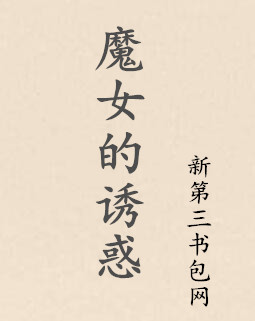 魔女的诱惑
新第三书包网